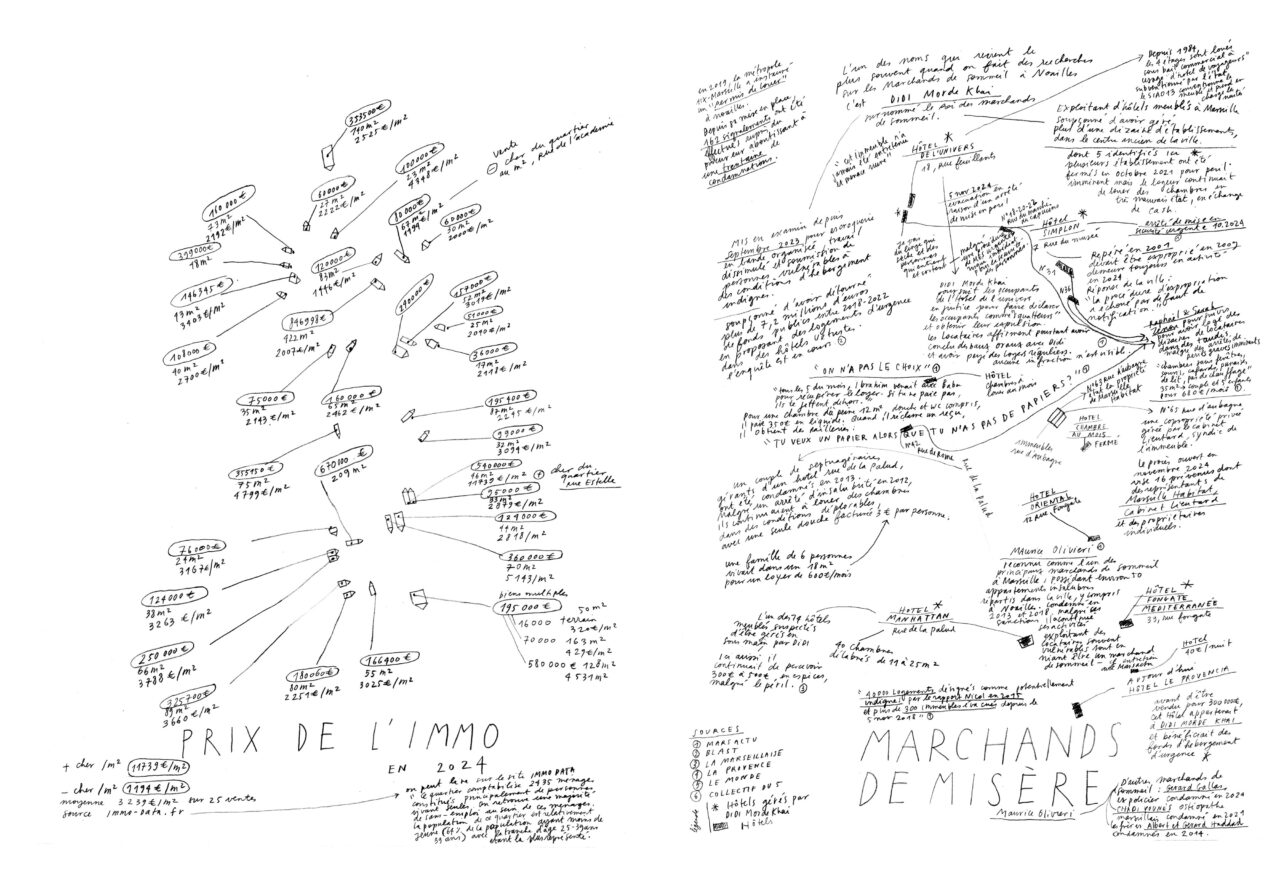 333500€
110 m²
2525€/m²
60000€
27 m²
2222€/m²
100000€
23 m²
4348€/m²
vente
⊖ cher du quartier
au m², rue de l'academie
80000€
67 m²
1194
60000€
30 m²
2000€/m²
160000€
73 m²
2192€/m²
399000€
18 m²
146345€
43 m²
3403€/m²
108000€
40 m²
2700€/m²
120000€
83 m²
1446€/m²
846998€
422 m²
2007€/m²
157000€
52 m²
3019€/m²
51000€
25 m²
2040€/m²
36000€
17 m²
2118€/m²
75000€
35 m²
2143€/m²
160000€
65 m²
2462€/m²
195400€
87 m²
2245€/m²
99000€
32 m²
3094€/m²
540000€
46 m²
11739€/m²
⊕ cher du
quartier
rue Estelle
95000€
2879€/m²
124000€
44 m²
2818/m²
360000€
70 m²
5143/m²
355150€
75 m²
4799€/m²
670000€
209 m²
76000€
24 m²
3167€/m²
124000€
38 m²
3263€/m²
250000€
66 m²
3788€/m²
325700€
89 m²
3660€/m²
180060€
80 m²
2251€/m²
166400€
55 m²
3025€/m²
biens multiples
195000€
50 m²
16000 terrain
320€/m²
70000 163 m²
429€/m²
580000€ 128 m²
4531 m²
PRIX DE L'IMMO
EN 2024
+ cher /m² 11739€/m²
– cher /m² 1194€/m²
moyenne 3239€/m² sur 25 ventes
source Immo-Data.fr
on peut lire sur le site IMMO DATA
"le quartier comptabilise 2435 ménages
constitués principalement de personnes
vivant seules. On retrouve une majorité
de sans-emploi au sein de ces ménages.
la population de ce quartier est relativement
jeune (61% de la population ayant moins de
39 ans) avec la tranche d'age 25-39 ans
étant la plus représentée.
en 2019, la métropole
Aix-Marseille a instauré
un "permis de louer"
à noailles.
Depuis sa mise en place,
162 signalements ont été
condamnations.
L'un des noms qui revient le
plus souvent quand on fait des recherches
sur les Marchands de sommeil à Noailles
c'est DIDI Morde Khai
surnommé le Roi des marchands
de sommeil.
Depuis 1984,
les 4 étages sont loués
sous bail commercial à
usage d'hotel de voyageurs
Exploitant d'hôtels meublés à Marseille
soupçonné d'avoir géré
plus d'une dizaine d'établissements,
dans le centre ancien de la ville.
dont 5 identifiés ici *
plusieurs établissement ont été
fermés en octobre 2021 pour péril
imminent mais le logeur continuait
de louer des chambres en
très mauvais état, en échange
de cash.
"cet immeuble n'a
jamais été entretenu
et menace ruine"
HÔTEL *
DE L'UNIVERS
18, rue feuillants
5 nov 2024
évacuation en
raison d'un arrêté
de mise en péril
N°18-20-26
Rue du marché
des capucins
*
HÔTEL
SIMPLON
7 Rue du musée
arrêté de mise en
sécurité urgente 10.2024
Mis en examen depuis
septembre 2023 pour escroquerie
en bande organisée, travail
dissimulé et soumission de
personnes vulnérables à
des conditions d'hébergement
indignes.
soupçonné d'avoir détourné
plus de 7,2 millions d'euros
de fonds publics entre 2018-2022
en proposant des logements d'urgence
dans des hôtels vétustes
l'enquête est en cours
Repéré en 2001
devait être exproprié en 2007
demeure toujours en activité
en 2024
Réponse de la ville :
"la procédure d'expropriation
a échoué par défaut de
notification."
N°31
N°36
DIDI Morde Khai
poursuit les occupants
de l'Hotel de l'univers
en justice pour faire déclarer
les occupants comme squatteurs
et obtenir leur expulsion
les locataires affirment pourtant avoir
conclu des baux oraux avec Didi
et avoir payé des loyers réguliers.
aucune infraction n'est visible.
"ON N'A PAS LE CHOIX"
"tous les 5 du mois, Ibrahim venait avec Baba
pour récupérer le loyer. Si tu ne paie pas,
ils te jettent dehors."
pour une chambre de peine 12 m² douche et WC compris,
il paie 350€ en liquide. Quand il réclame un reçu,
il obtient des railleries:
"TU VEUX UN PAPIER ALORS QUE TU N'AS PAS DE PAPIERS?"
HÔTEL
chambre à
louer au mois
N°42
Rue de Rome
Rue de la Palud
N°63 Rue d'aubagne
était la propriété
de Marseille
Habitat
immeubles
rue d'Aubagne
HOTEL
CHAMBRE
AU MOIS
FERME
Raphaël & Sarah
"chambres sans fenêtres,
35 m² couple et 5 enfants
pour 660€/mois
N°65 rue d'aubagne
une copropriété privée
gérée par le cabinet
Lieutard, syndic de
l'immeuble.
le procès ouvert en
novembre 2024
vise 16 prévenus dont
des représentants de
Marseille Habitat,
cabinet Lieutard
et des propriétaires
individuels.
un couple de septuagénaires,
gérants d'un hotel rue de la Palud,
ont été condamnés en 2013.
Malgré un arrêté d'insalubrité en 2012,
ils continuaient à louer des chambres
dans des conditions déplorables,
avec une seule douche facturée 3€ par personne.
une famille de 6 personnes
vivait dans un 18 m²
pour un loyer de 600€/mois
HOTEL
ORIENTAL
12 Rue Fongate
MAURICE Olivieri
reconnu comme l'un des
principaux marchands de sommeil
à Marseille, possédant environ 50
appartements insalubres
répartis dans la ville, y compris
à Noailles. condamné en
2013 et 2018, malgré ses
sanctions il continue
ses activités
exploitant des
locataires souvent
vulnérables tout en
niant être un marchand
de sommeil
HÔTEL *
FONGATE
MEDITERRANÉE
33, rue fongate
L'un des 74 hôtels
meublés suspectés
d'être gérés en
sous main par Didi
Ici aussi il
continuait de percevoir
300€ à 500€, en espèces,
malgré le péril.
HOTEL *
MANHATTAN
Rue de la palud
40 chambres
délabrés de 11 à 25 m²
HOTEL
40€/nuit
AUJOURD'hui
HÔTEL LE PROVENCIA
avant d'être
vendu pour 300000€,
cet Hôtel appartenait
à DIDI MORDE KHAI
et bénéficiait des
fonds d'hébergement
d'urgence *
"40000 logements désignés comme potentiellement
indignes" par le rapport Nicol en 2015
et plus de 300 immeubles évacués depuis le
5 nov 2018"
SOURCES
① MARSACTU
② BLAST
③ LA MARSEILLAISE
④ LA PROVENCE
⑤ LE MONDE
⑥ COLLECTIF DU 5
légende
* Hôtels gérés par
DIDI Morde Khai
Hôtels
MARCHANDS
DE MISÈRE
Maurice Olivieri
D'autres marchands de
sommeil : Gerard Gallas
ex policier condamné en 2024
CHADI YOUNES ostéopathe
marseillais condamné en 2021
les frères Albert et Gerard Haddad
condamnés en 2014.